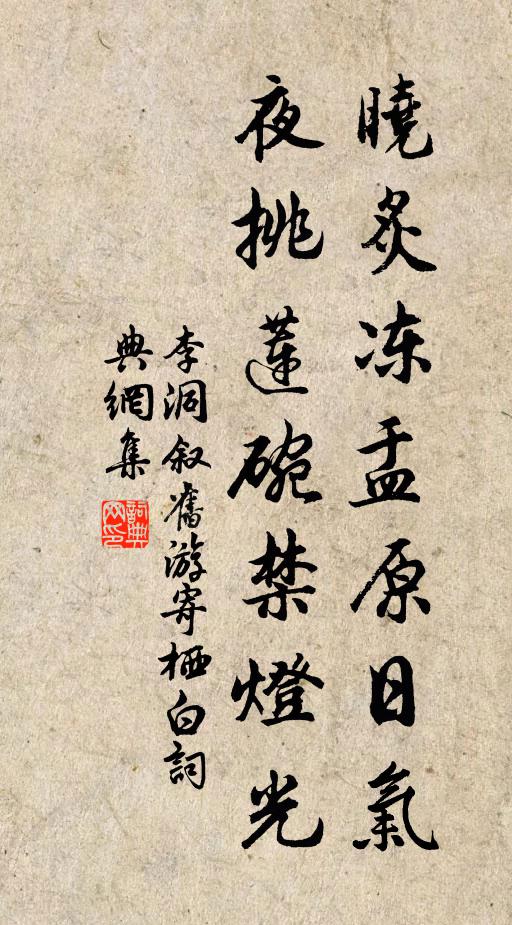 曉炙凍盂原日氣
夜挑蓮碗禁燈光
李洞叙舊游寄栖白詞
典網集
詞典
网印